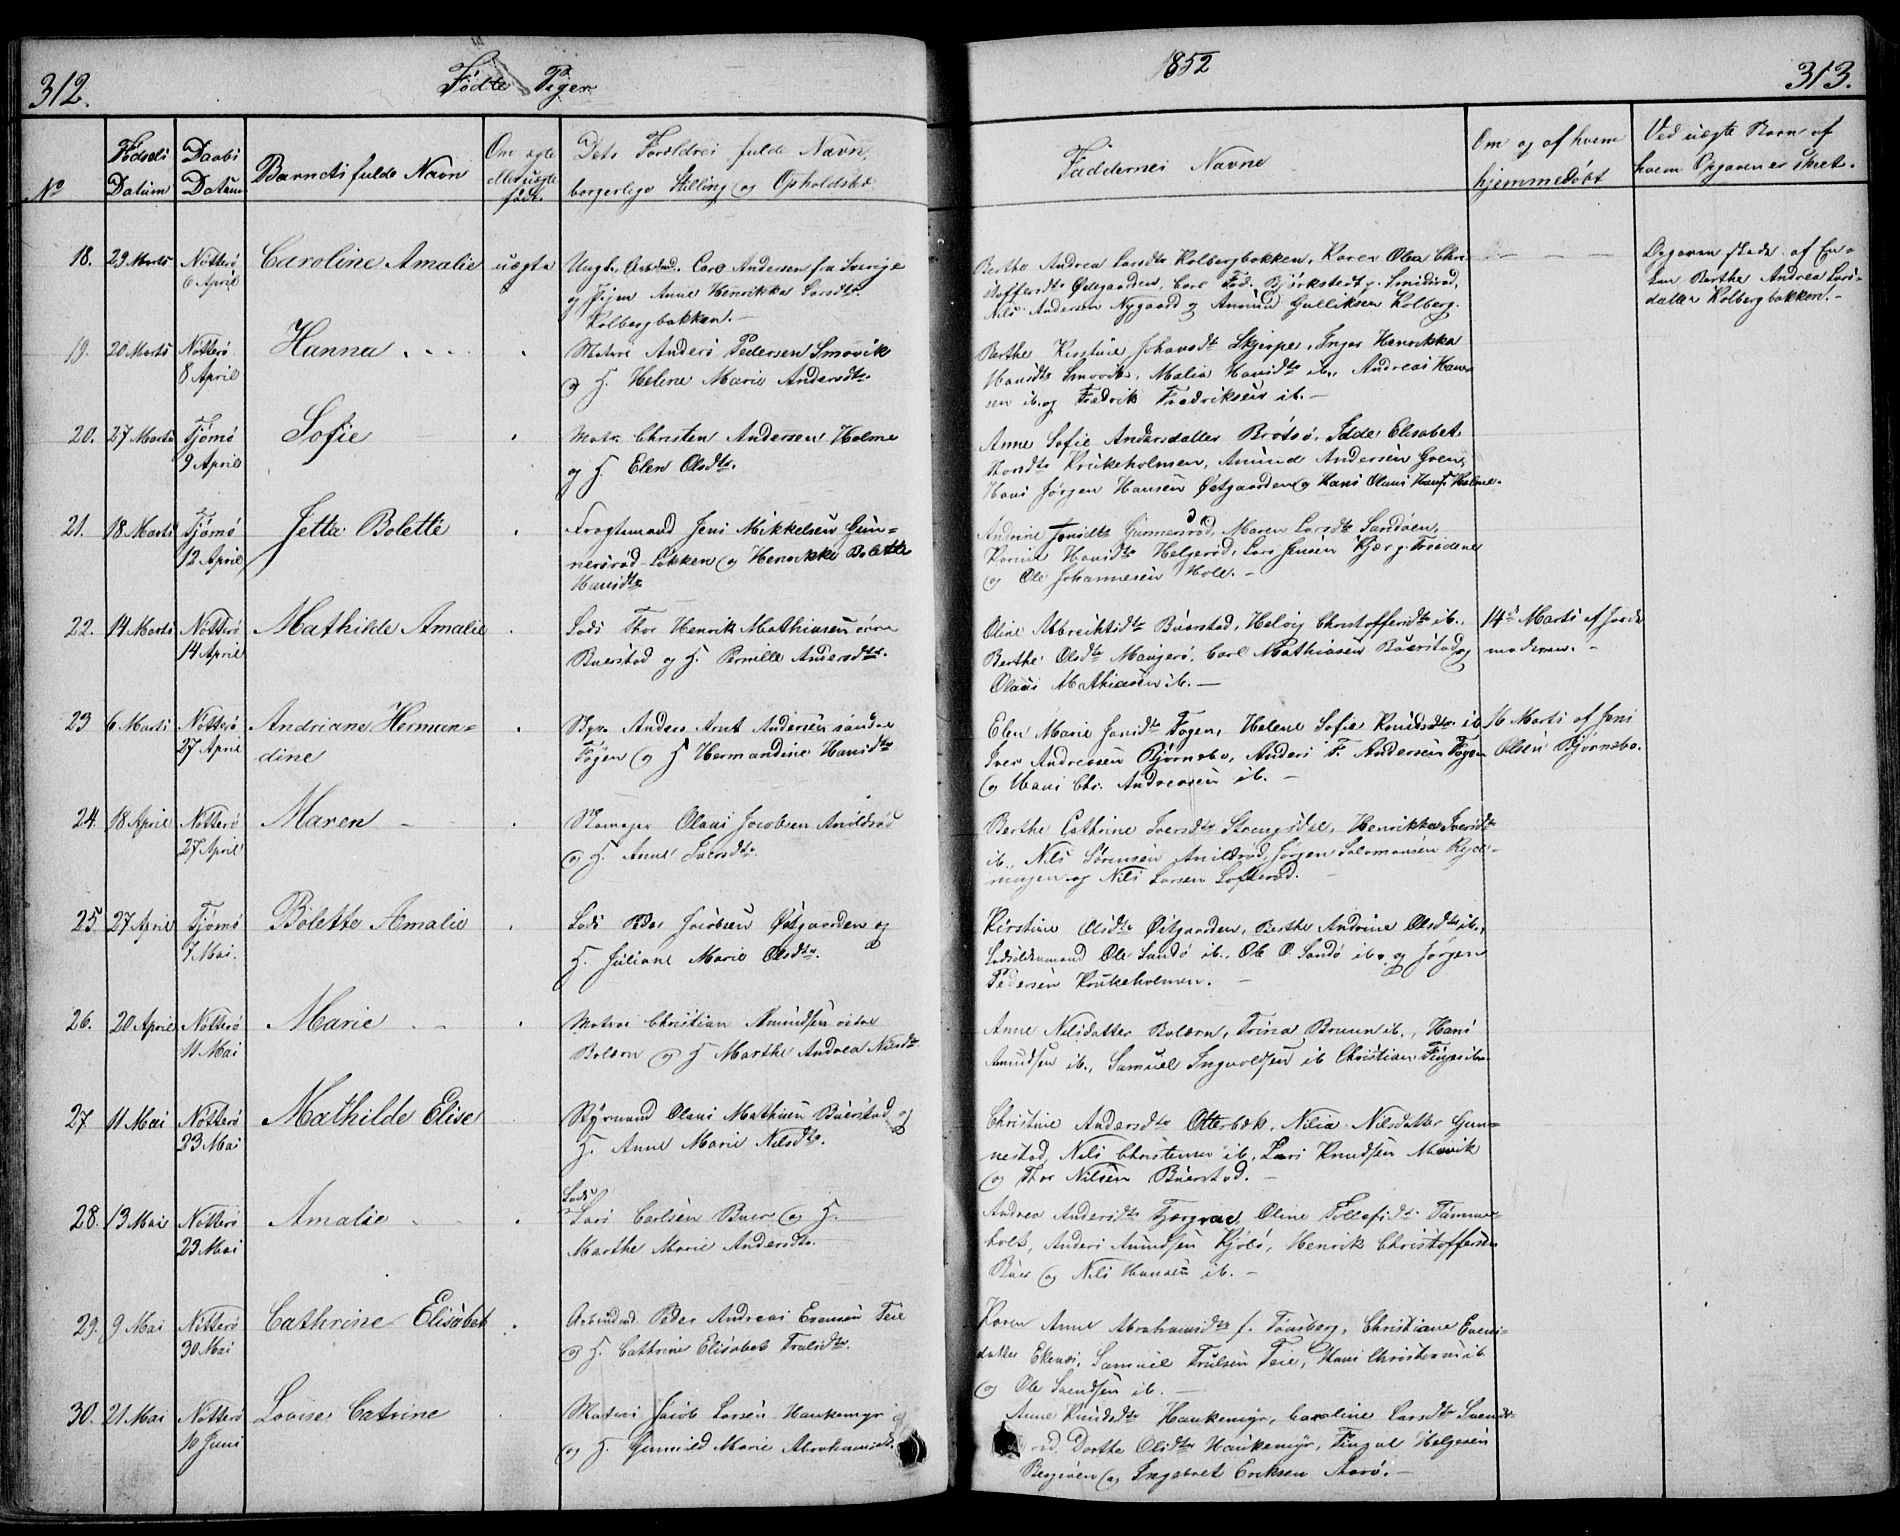 312.
Fødte Piger
1852
313.
No
Fødsels Datum
Daabs Datum
Barnets fulde Navn
Om ægte eller uægte født.
Dets Forældres fulde Navn, borgerlige Stilling og Opholdsted
Faddernes Navne
Om og af hvem hjemmedøbt
Ved uægte Børn af hvem Opgaven er skeet.
18. 29 Marts Nøtterø 6 April Caroline Amalie uægte
Ungk. Carl Andersen fra Sverige
og Pigen Anne Henrikka Larsdtr
Kolbergbakken.
Berthe Andrea Larsdtr Kolbergbakken, Karen Olea Chri-
stoffersdtr Østegaarden, Carl Fred. Bjørkstedt p. Smidsrød,
Nils Andersen Nygaard og Amund Gulliksen Kolberg.
Opgaven skede af En-
ken Berthe Andrea Lars-
datter Kolbergbakken.
19. 20 Marts Nøtterø 8 April Hanna
Matros Anders Pedersen Smovik
og H. Helene Marie Andersdtr.
Berthe Kirstine Johansdtr Skjerpe, Inger Henrikka
Hansdtr Smovik, Malia Hansdtr ib., Andreas Han-
sen ib. og Fredrik Fredriksen ib.
20. 27 Marts Tjømø 9 April Sofie
Matr. Christen Andersen Holme
og H. Elen Olsdtr.
Anne Sofie Andersdatter Brøtsø, Edde Elisabet
Krukeholmen, Amund Andersen Gren,
Hans Jørgen Hansen Østgaarden og Hans Olaus Hans. Holme.
21. 18 Marts Tjømø 12 April Jetta Bolette
Fragtemand Jens Mikkelsen Gun-
nersrød Løkken og Henrikke Bolette
Hansdtr
Andrine Jensdtr Gunnersrød, Maren Larsdtr Sandøen,
Karine Hansdtr Helgerød, Lars Jensen Kjær
og Ole Johannesen Hole.
22. 14 Marts Nøtterø 14 April Mathilde Amalie
Lods Thor Henrik Mathiasen øvre
Buerstad og H. Pernille Andersdtr.
Oline Albrechtsdtr Buerstad, Helvig Christoffersdtr ib.,
Berthe Olsdtr Mangerø, Carl Mathiasen Buerstad og
Olaus Mathiasen ib.
14de Marts af Jorde
moderen.
23 6 Marts Nøtterø 27 April Andriane Herman-
dine
Styr. Anders Arnt Andersen søndre
Føgen og H Hermandine Hansdtr
Elen Marie Hansdtr Føgen, Helene Sofie Knudsdtr ib
Iver Andreasen Bjørnebo, Anders F. Andersen Føgen
og Hans Chr. Andreasen ib.
16 Marts af Jens
Olsen Bjørnebo.
24. 18 April Nøtterø 27 April Maren
Olaus Jacobsen Arildsrød
og H. Anne Iversdtr
Berthe Cathrine Iversdtr Strengsdal, Henrikka Iversdtr
ib., Nils Sørensen Arildsrød, Jørgen Salomonsen
og Nils Larsen Lofterød.
25. 27 April Tjømø 7 Mai. Bolette Amalie
Lods Peder Jacobsen Østgaarden og
H. Juliane Marie Olsdtr.
Kirstine Olsdtr Østgaarden, Berthe Andrine Olsdtr ib.,
Lodsoldermand Ole Sandø ib., Ole O. Sandø ib. og Jørgen
Pedersen Krukeholmen.
26. 20 April Nøtterø 11 Mai Marie
Matros Christian Amundsen østre
Bolærn og H Marthe Andrea Nilsdtr
Anne Nilsdatter Bolærn, Trina Bruun ib., Hans
Amundsen ib., Samuel Ingvoldsen ib Christian
27 11 Mai Nøtterø 23 Mai Mathilde Elise
Styrmand Olaus Mathisen Buerstad og
H. Anne Marie Nilsdtr.
Christine Andersdtr Otterbæk, Nilia Nilsdatter Gun-
nestad, Nils Christensen ib, Lars Knudsen Møvik
og Thor Nilsen Buerstad.
28. 13 Mai Nøtterø 23 Mai Amalie
Lods
Lars Carlsen Buer og H.
Marthe Marie Andersdtr
Andrea Andersdtr Fjærgrav, Oline Tollefsdtr Tømmer-
holt, Anders Amundsen Kjøle, Henrik Christoffersen
Buer og Nils Hansen ib.
29. 9 Mai Nøtterø 30 Mai Cathrine Elisabet
Arbeidsmd. Peder Andreas Evensen Teie
og H. Cathrine Elisabet Trulsdtr.
Karen Anne Abrahamsdtr f. Tønsberg, Christiane Evens-
datter Ekenæs, Samuel Trulsen Teie, Hans Christensen ib
og Ole Svendsen ib.
30. 21 Mai Nøtterø 10 Juni Lovise Catrine
Matros Jacob Larsen Haukemyr
og H. Gunnild Marie Abrahamsdtr.
Anne Knudsdtr Haukemyr, Caroline Larsdtr Svends-
rød, Dorthe Olsdtr Haukemyr, Fingal Helgesen
Bergsven og Ingebret Eriksen Aarø.